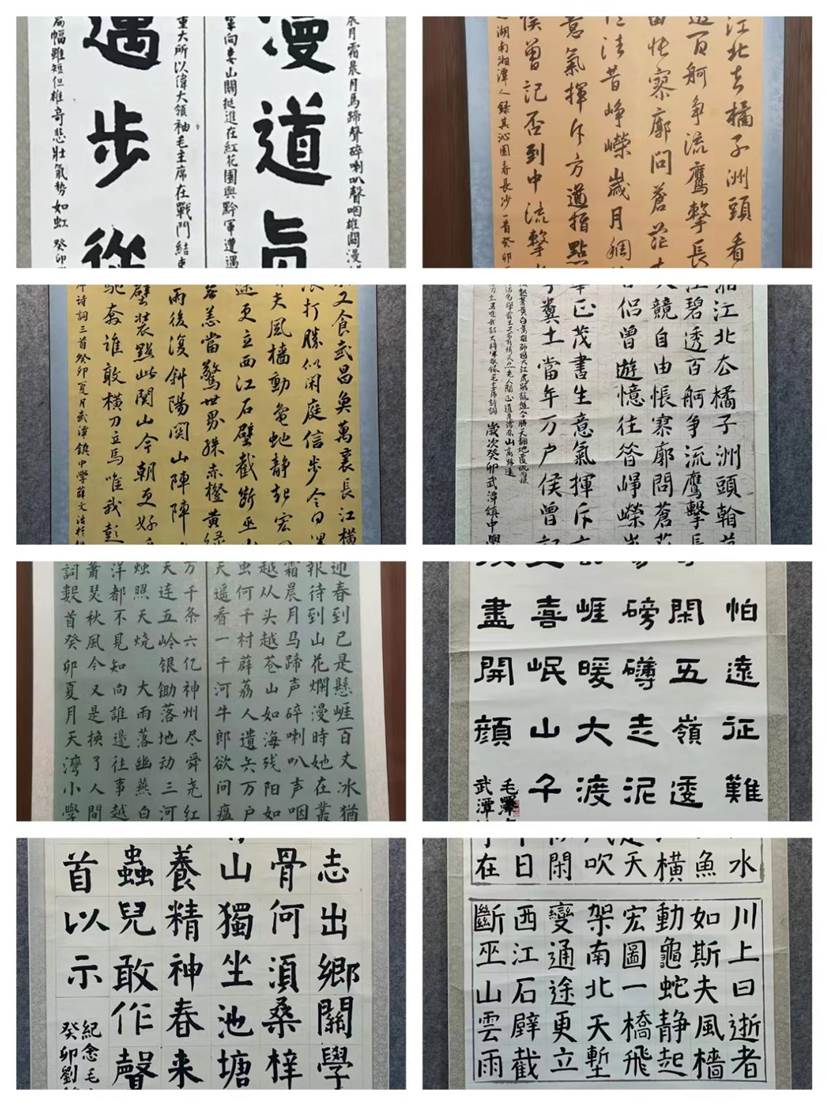 晨月霜晨月馬蹄聲碎喇叭聲咽雄關漫
漫道真
軍向婁山關挺進在紅花園與黔軍遭遇
重大所以偉大領袖毛主席在戰鬥結束
邁步從
局幅雖短但雄奇悲壯氣勢如虹 癸卯
江北去橘子洲頭看
百舸爭流鷹擊長
由悵寥廓問蒼茫
往昔崢嶸歲月稠
意氣揮斥方遒指點
侯曾記否到中流擊
湖南湘潭人錄其沁園春長沙一首癸卯
又食武昌魚萬里長江橫
浪打勝似閑庭信步今日
夫風檣動龜蛇靜起宏
途更立西江石壁截斷巫
若恙當驚世界殊赤橙黃綠
雨後復斜陽関山陣陣
壁裝點此関山今朝更好
馳奔誰敢橫刀立馬唯我彭
詩詞三首癸卯夏月武潭鎮中學薛文法
湘江北去橘子洲頭
江碧透百舸爭流鷹擊長
競自由悵寥廓問蒼茫
侶曾遊憶往昔崢嶸
正茂書生意氣揮斥
字糞土當年万户侯曾記
歲次癸卯武潭鎮中學
迎春到已是懸崖百丈冰猶
報待到山花爛漫時她在叢
霜晨月马蹄声碎喇叭声咽
越从头越苍山如海残阳如
虫何千村薜荔人遗矢万户
天遥看一千河牛郎欲问瘟
万千条六亿神州尽舜尧红
天连五岭银锄落地动三河
烛照天烧 大雨落幽燕白
洋都不見知向誰邊往事越
萧瑟秋風今又是换了人間
詞数首癸卯夏月天灣小學
怕遠征難
閑五嶺逶
磅礴走泥
崖暖大渡
喜岷山千
盡開顏
毛澤
武潭
志出鄉關學
骨何須桑梓
山獨坐池塘
養精神春來
蟲兒敢作聲
首以示
紀念毛
癸卯劉
水
魚
橫
天
吹
閑
日
在
川上曰逝者
如斯夫風檣
動龜蛇靜起
宏圖一橋飛
架南北天塹
變通途更立
西江石壁截
斷巫山雲雨